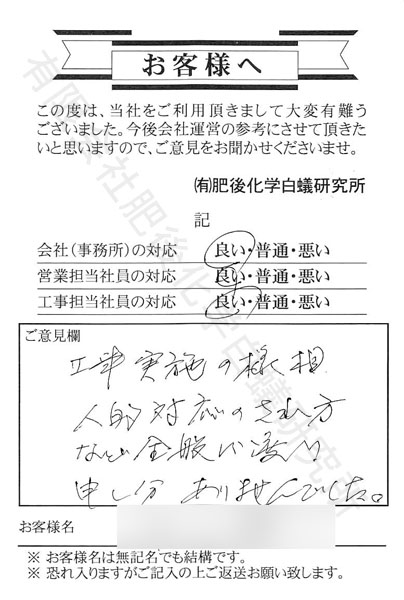 お客様へ
この度は、当社をご利用頂きまして大変有難う
ございました。今後会社運営の参考にさせて頂きた
いと思いますので、ご意見をお聞かせくださいませ。
㈲肥後化学白蟻研究所
記
会社（事務所）の対応 良い・普通・悪い
営業担当社員の対応 良い・普通・悪い
工事担当社員の対応 良い・普通・悪い
ご意見欄
工事実施の様相
人的対応のされ方
など全般に渡り
申し分ありませんでした。
お客様名
※ お客様名は無記名でも結構です。
※ 恐れ入りますがご記入の上ご返送お願い致します。
有限会社肥後化学白蟻研究所